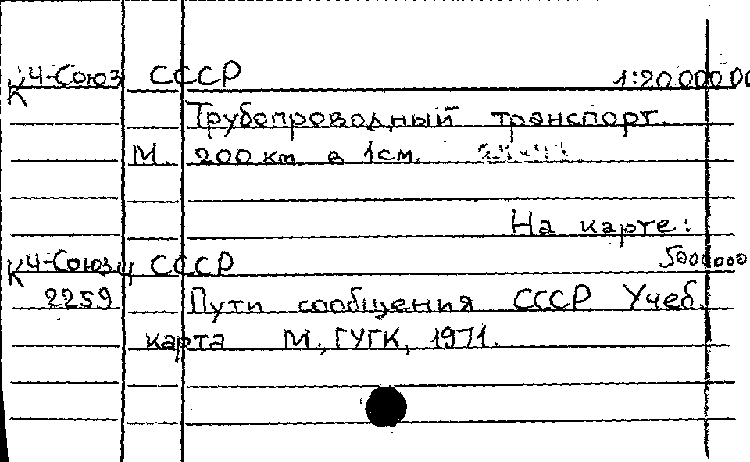 К 4-Союз СССР 1:20.000.00
Трубопроводный транспорт.
М. 200 км в 1 см.
На карте:
К 4-Союз СССР 5000000
2259 Пути сообщения СССР Учеб.
карта М., ГУГК, 1971.